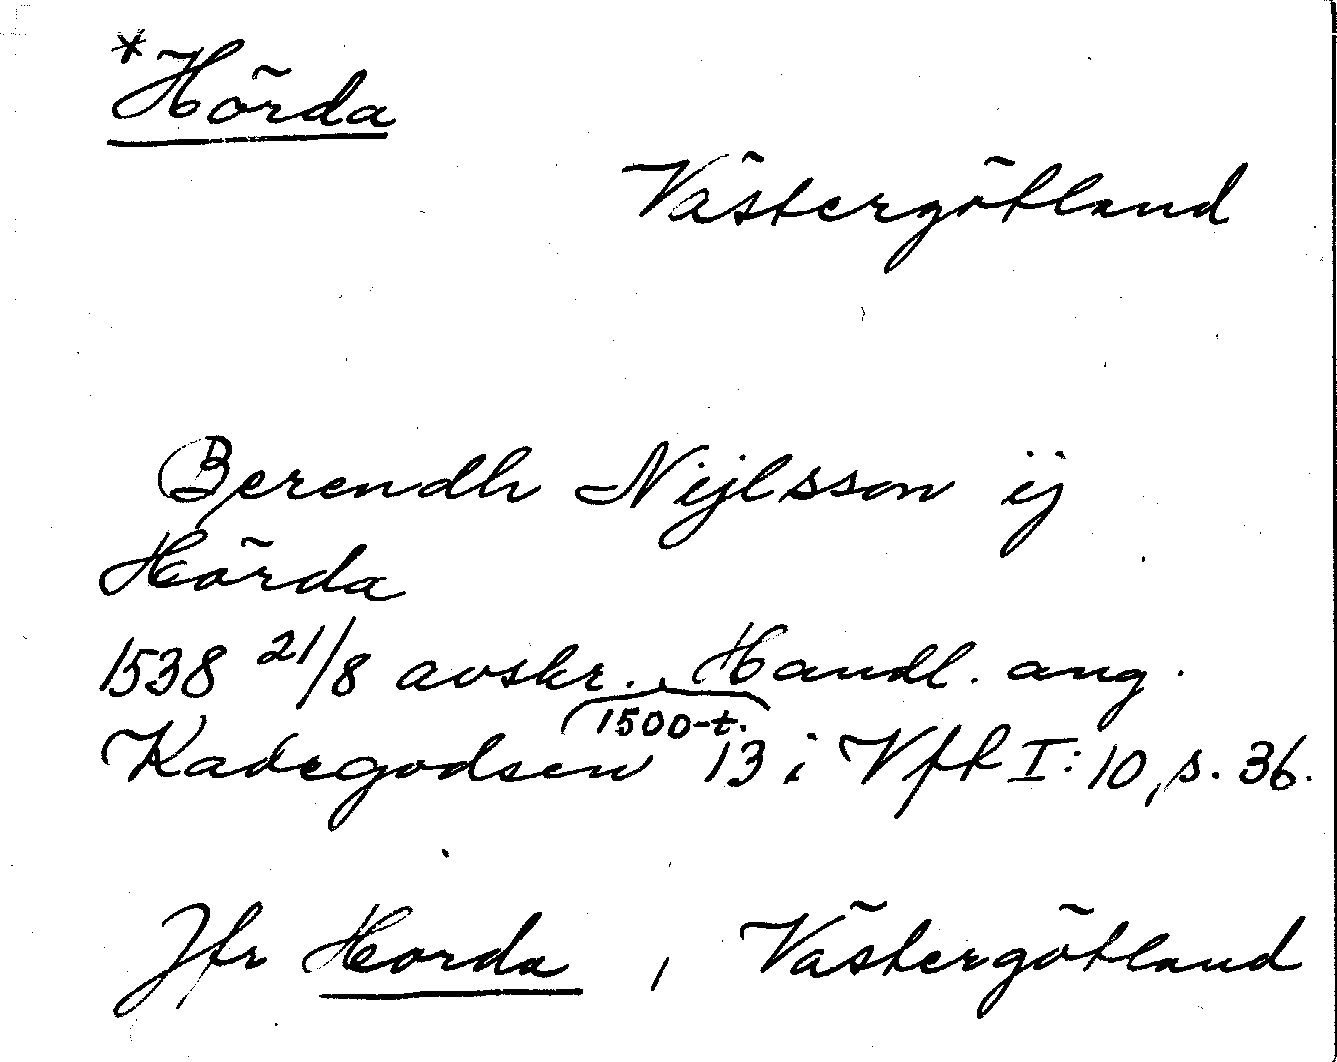 *Hörda
Västergötland
Berendh Nijlsson ij
Hörda
1538 21/8 avskr. Handl. ang.
1500-t.
Kadegodsen 13 i Vfk I:10, s. 36.
Jfr Horda, Västergötland